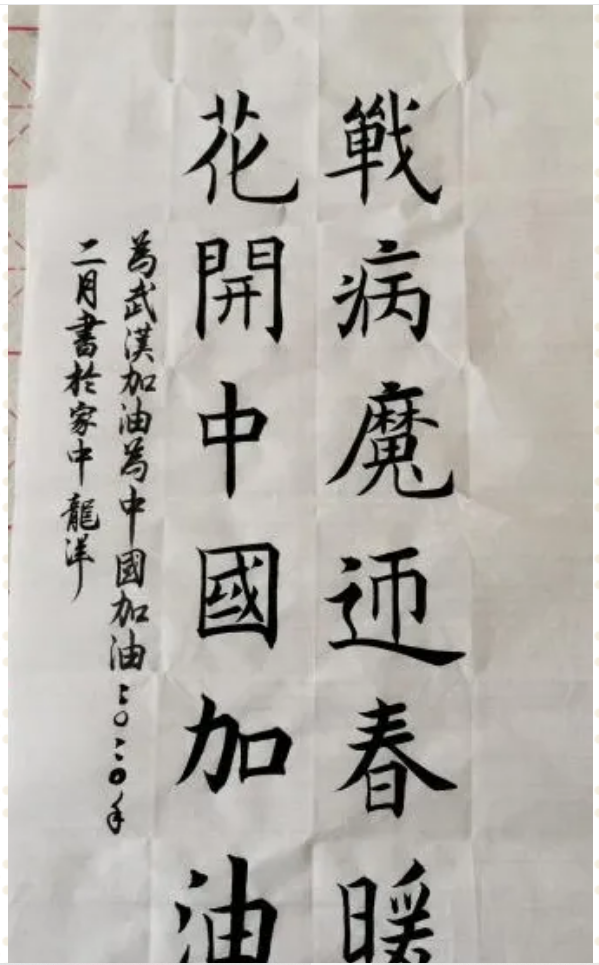 戰病魔迊春暖
花開中國加油
為武漢加油為中國加油二〇二〇年
二月書於家中龍洋